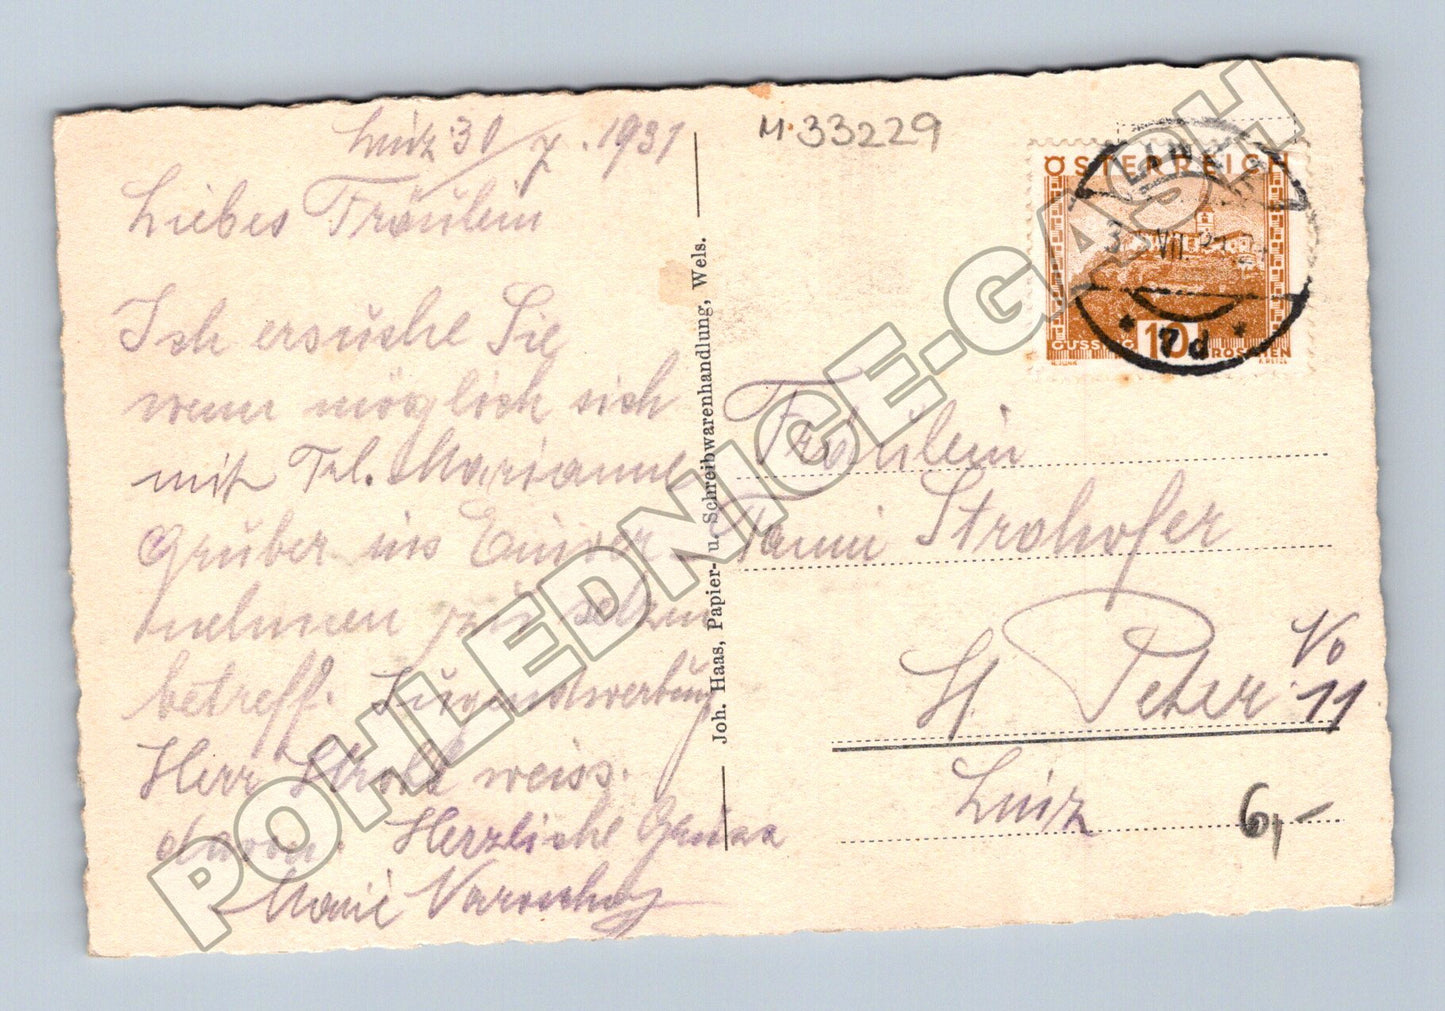 Linz 30/7. 1931
M. 33229
Liebes Fräulein
Ich ersuche Sie
wenn möglich sich
mit Frl. Marianne
Gruber ins Einver
nehmen zu setzen
betreff. Jugendwerbung
Herr Strobl weiss.
davon. Herzliche Grüsse
Marie
Joh. Haas, Papier- u. Schreibwarenhandlung, Wels.
ÖSTERREICH
GÜSSING 10
LINZ
VII. 31
Fräulein
Fanni Strohofer
St. Peter No 11
Linz
6,-
POHLEDNICE-GASH